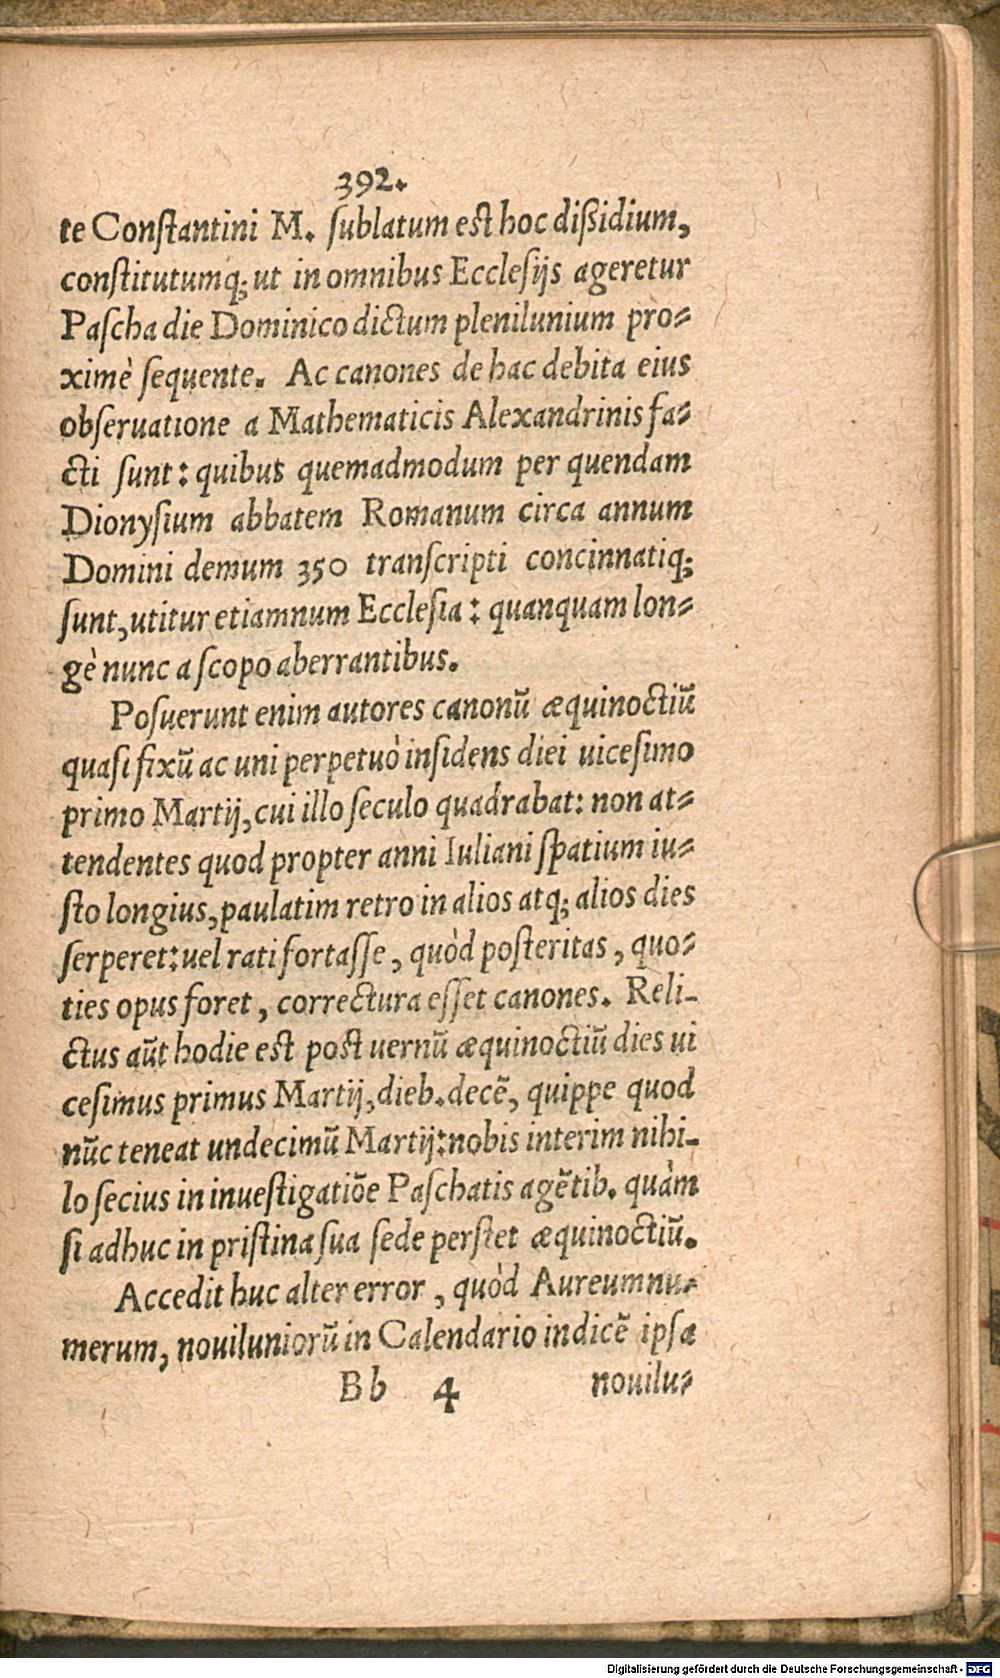 392.
te Conſtantini M. ſublatum eſt hoc dißidium,
conſtitutumq; ut in omnibus Eccleſijs ageretur
Paſcha die Dominico dictum plenilunium pro-
ximè ſequente. Ac canones de hac debita eius
obſeruatione a Mathematicis Alexandrinis fa-
cti ſunt: quibus quemadmodum per quendam
Dionyſium abbatem Romanum circa annum
Domini demum 350 tranſcripti concinnatiq;
ſunt, utitur etiamnum Eccleſia: quanquam lon-
gè nunc a ſcopo aberrantibus.
Poſuerunt enim autores canonū æquinoctiū
quaſi fixū ac uni perpetuò inſidens diei uiceſimo
primo Martij, cui illo ſeculo quadrabat: non at-
tendentes quod propter anni Iuliani ſpatium iu-
ſto longius, paulatim retro in alios atq; alios dies
ſerperet: uel rati fortaſſe, quòd poſteritas, quo-
ties opus foret, correctura eſſet canones. Reli-
ctus aūt hodie eſt poſt uernū æquinoctiū dies ui
ceſimus primus Martij, dieb. decē, quippe quod
nūc teneat undecimū Martij: nobis interim nihi-
lo ſecius in inueſtigatiōe Paſchatis agētib. quàm
ſi adhuc in priſtina ſua ſede perſtet æquinoctiū.
Accedit huc alter error, quòd Aureum nu-
merum, nouiluniorū in Calendario indicē ipſa
Bb 4 nouilu-
Digitalisierung gefördert durch die Deutsche Forschungsgemeinschaft - DFG